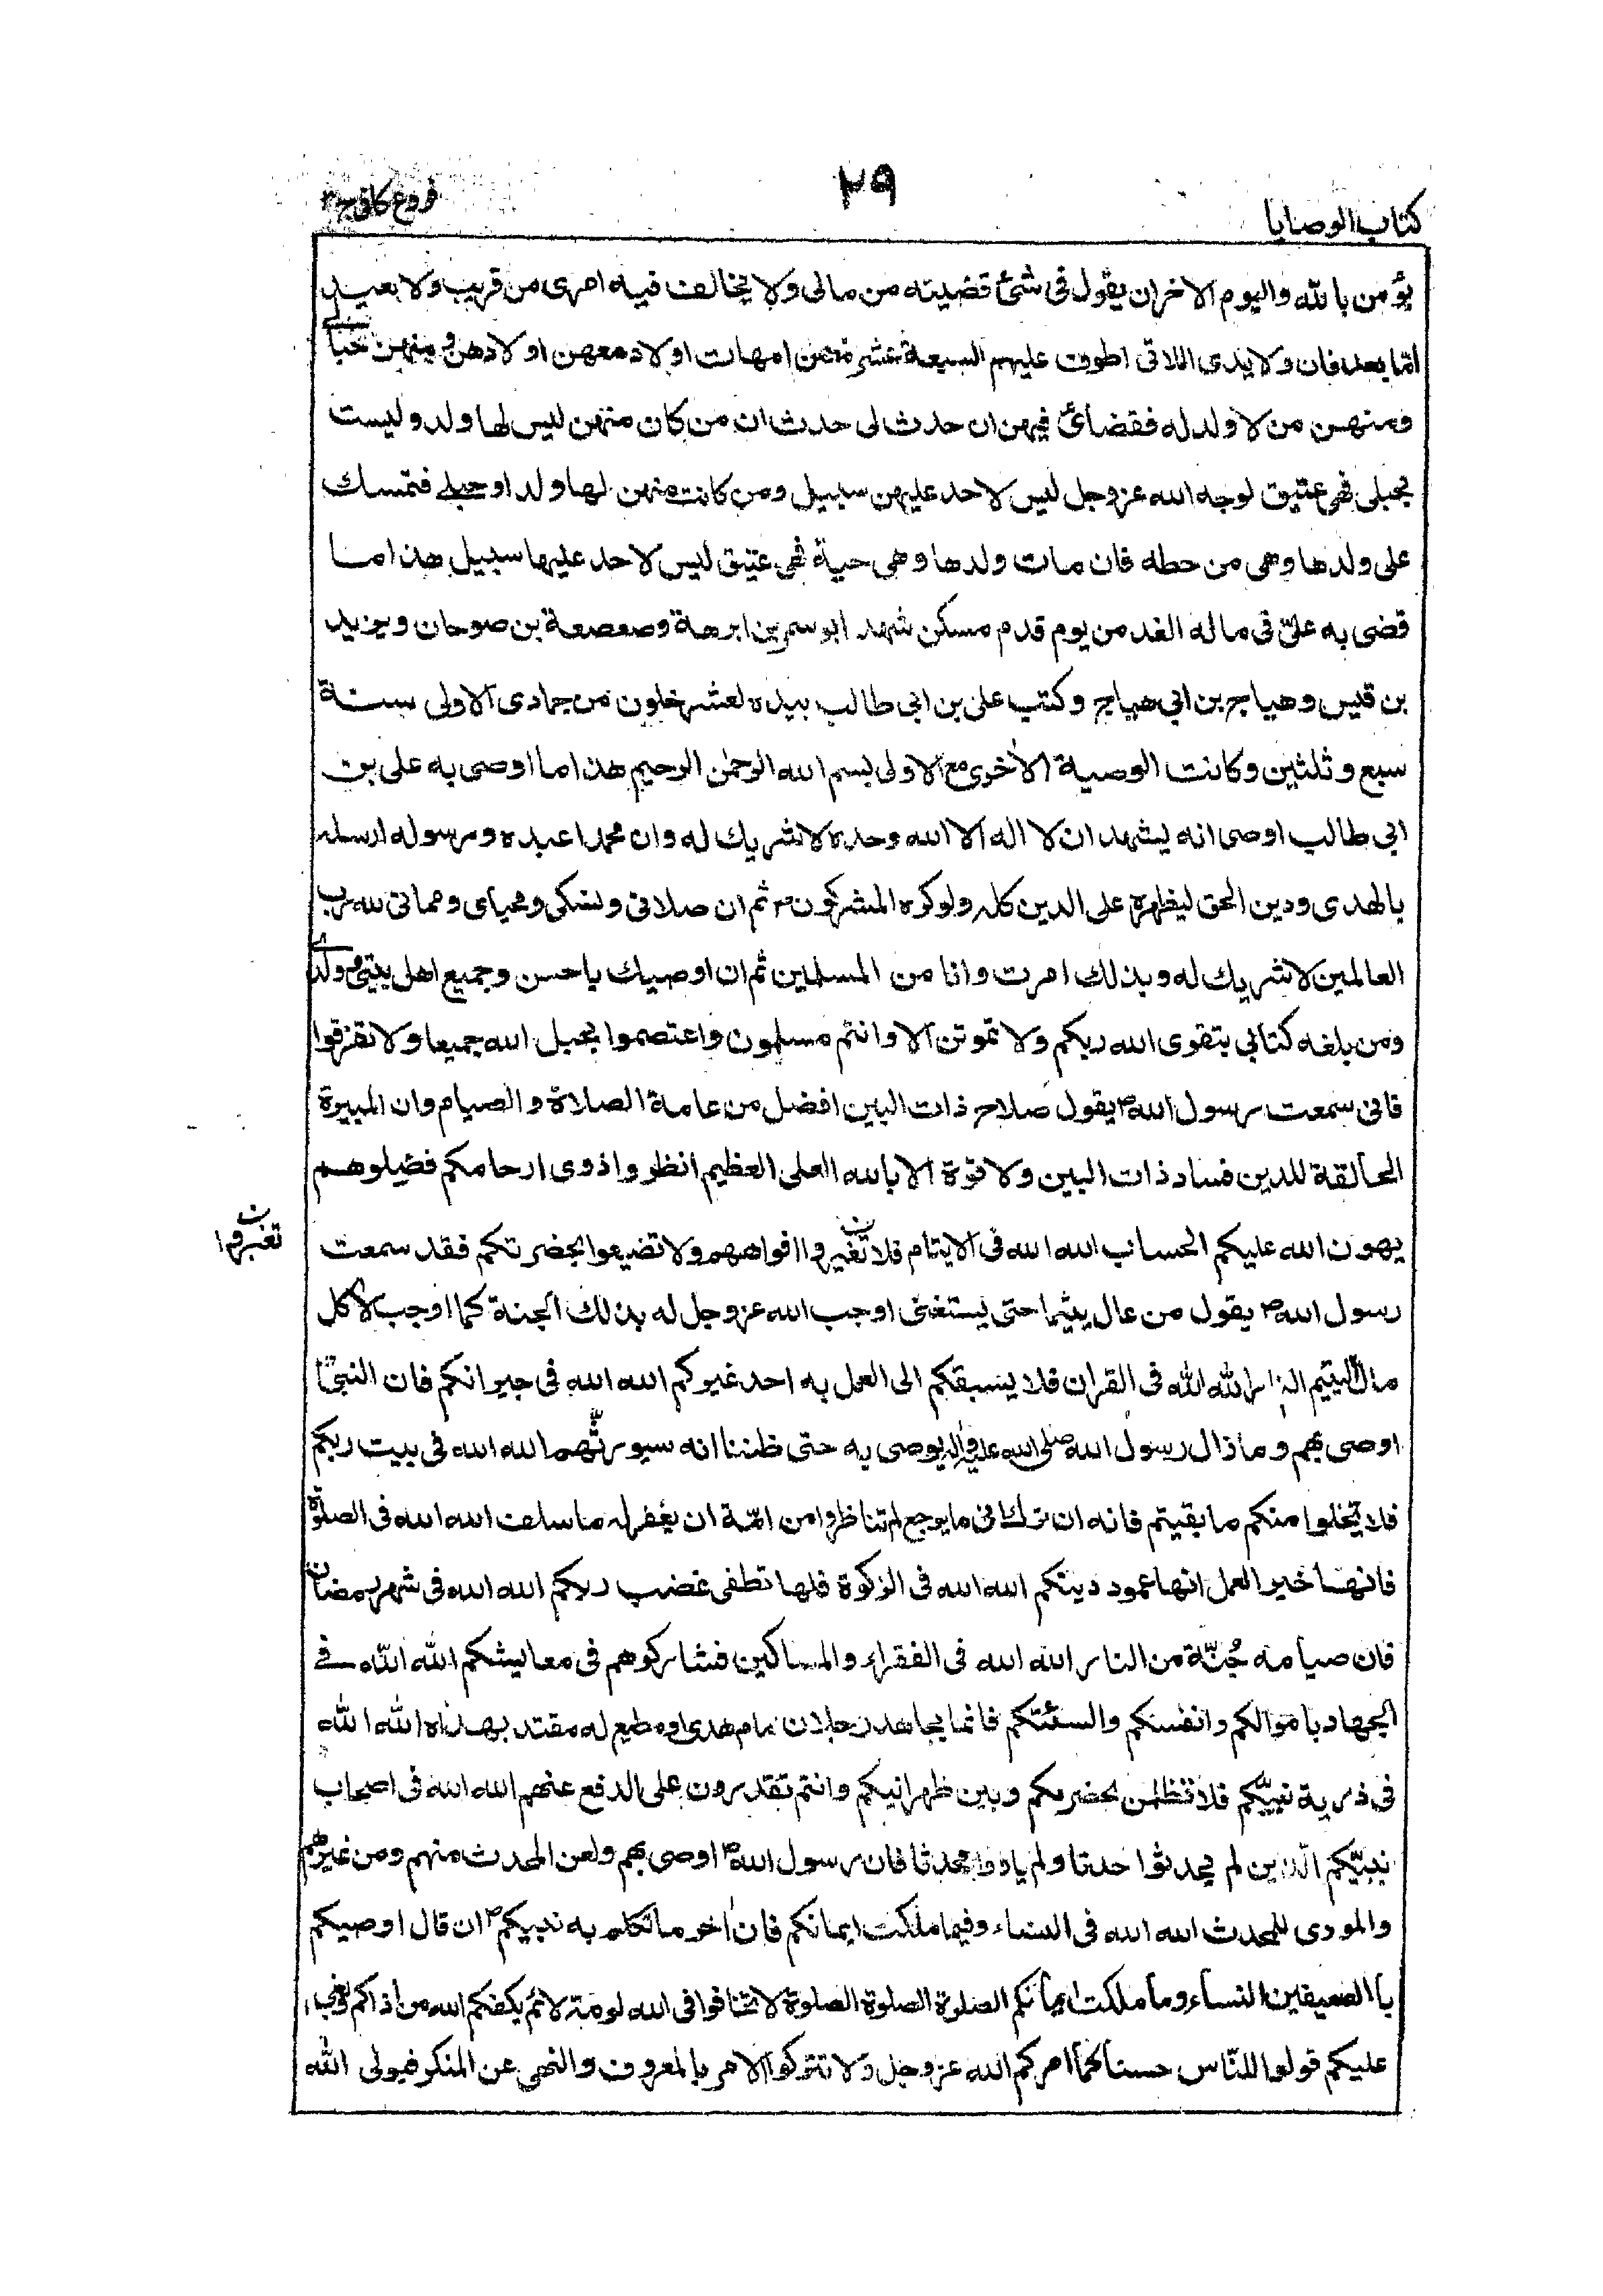 كتاب الوصايا
٢٩
فروع كافي ج٣
يؤمن بالله واليوم الاخر ان يقول في شئ قضيته من مالي ولا يخالف فيه امرى من قريب ولا بعيد
اما بعد فان ولايدى اللاتي اطوف عليهم السبعة عشر منهن امهات اولاد معهن اولادهن ومنهن حبالى
ومنهن من لا ولد له فقضائ فيهن ان حدث لى حدث ان من كان منهن ليس لها ولد وليست
بحبلى فهى عتيق لوجه الله عز وجل ليس لاحد عليهن سبيل ومن كانت منهن لها ولد او حبلى فتمسك
على ولدها وهى من حظه فان مات ولدها وهى حية فهى عتيق ليس لاحد عليها سبيل هذا ما
قضى به على في ماله الغد من يوم قدم مسكن شهد ابو سمر بن ابرهة وصعصعة بن صوحان ويزيد
بن قيس وهياج بن ابي هياج وكتب على بن ابي طالب بيده لعشر خلون من جمادى الاولى سنة
سبع وثلثين وكانت الوصية الاخرى مع الاولى بسم الله الرحمن الرحيم هذا ما اوصى به على بن
ابي طالب اوصى انه يشهد ان لا اله الا الله وحده لا شريك له وان محمدا عبده ورسوله ارسله
بالهدى ودين الحق ليظهره على الدين كله ولو كره المشركون ثم ان صلاتى ونسكى ومحياى ومماتى لله رب
العالمين لا شريك له وبذلك امرت وانا من المسلمين ثم ان اوصيك يا حسن وجميع اهل بيتى وولدى
ومن بلغه كتابي بتقوى الله ربكم ولا تموتن الا وانتم مسلمون واعتصموا بحبل الله جميعا ولا تفرقوا
فانى سمعت رسول الله ص يقول صلاح ذات البين افضل من عامة الصلاة والصيام وان المبيرة
الحالقة للدين فساد ذات البين ولا قوة الا بالله العلى العظيم انظروا ذوى ارحامكم فصلوهم
يهون الله عليكم الحساب الله الله في الايتام فلا تغيروا افواههم ولا تضيعوا بحضرتكم فقد سمعت
رسول الله ص يقول من عال يتيما حتى يستغنى اوجب الله عز وجل له بذلك الجنة كما اوجب لاكل
مال اليتيم النار الله الله في القران فلا يسبقكم الى العمل به احد غيركم الله الله في جيرانكم فان النبي
اوصى بهم وما زال رسول الله صلى الله عليه واله يوصى به حتى ظننا انه سيورثهم الله الله في بيت ربكم
فلا يخلوا منكم ما بقيتم فانه ان ترك لم تناظروا من امه ان يغفر له ما سلف الله الله في الصلوة
فانها خير العمل انها عمود دينكم الله الله في الزكوة فلها تطفى غضب ربكم الله الله في شهر رمضان
فان صيامه جُنّة من النار الله الله في الفقراء والمساكين فشاركوهم في معايشكم الله الله في
الجهاد باموالكم وانفسكم والسنتكم فانما يجاهد رجلان امام هدى او مطيع له مقتد بهداه الله الله
في ذرية نبيّكم فلا تظلمن بحضرتكم وبين ظهرانيكم وانتم تقدرون على الدفع عنهم الله الله في اصحاب
نبيّكم الذين لم يحدثوا حدثا ولم ياووا محدثا فان رسول الله ص اوصى بهم ولعن المحدث منهم ومن غيرهم
والمودى للمحدث الله الله في النساء وفيما ملكت ايمانكم فان اخر ما تكلم به نبيكم ص ان قال اوصيكم
بالضعيفين النساء وما ملكت ايمانكم الصلوة الصلوة الصلوة لا تخافوا في الله لومة لائم يكفكم الله من اذاكم
عليكم قولوا للنّاس حسنا كما امركم الله عز وجل ولا تتركوا الامر بالمعروف والنهى عن المنكر فيولى الله